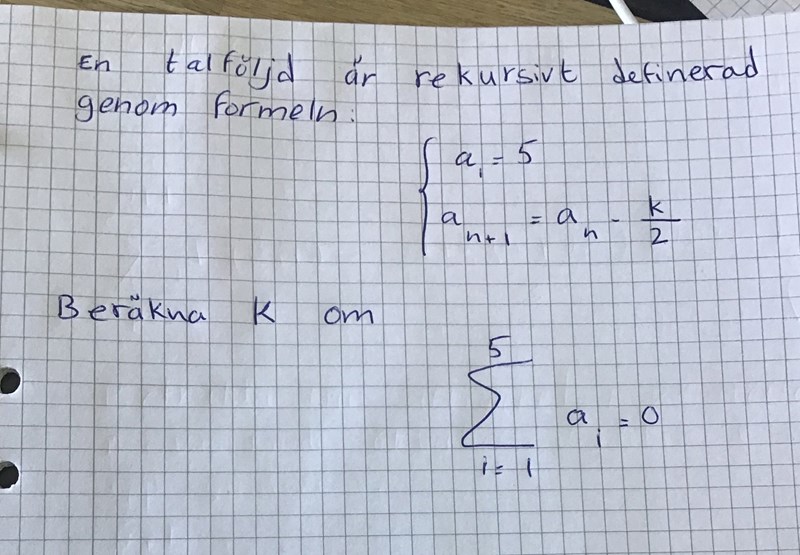 En talföljd är rekursivt definerad
genom formeln:
a₁ = 5
aₙ₊₁ = aₙ - k/2
Beräkna K om
5
∑ aᵢ = 0
i = 1